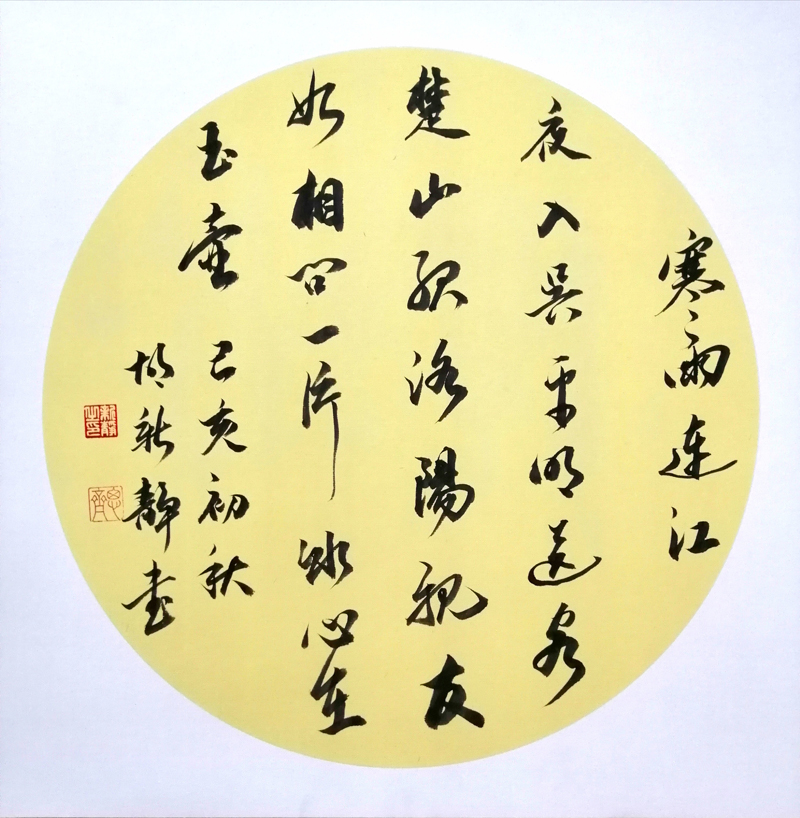 寒雨連江
夜入吳平明送客
楚山孤洛陽親友
如相問一片冰心在
玉壺 己亥初秋
胡新靜書
新靜之印
思齊